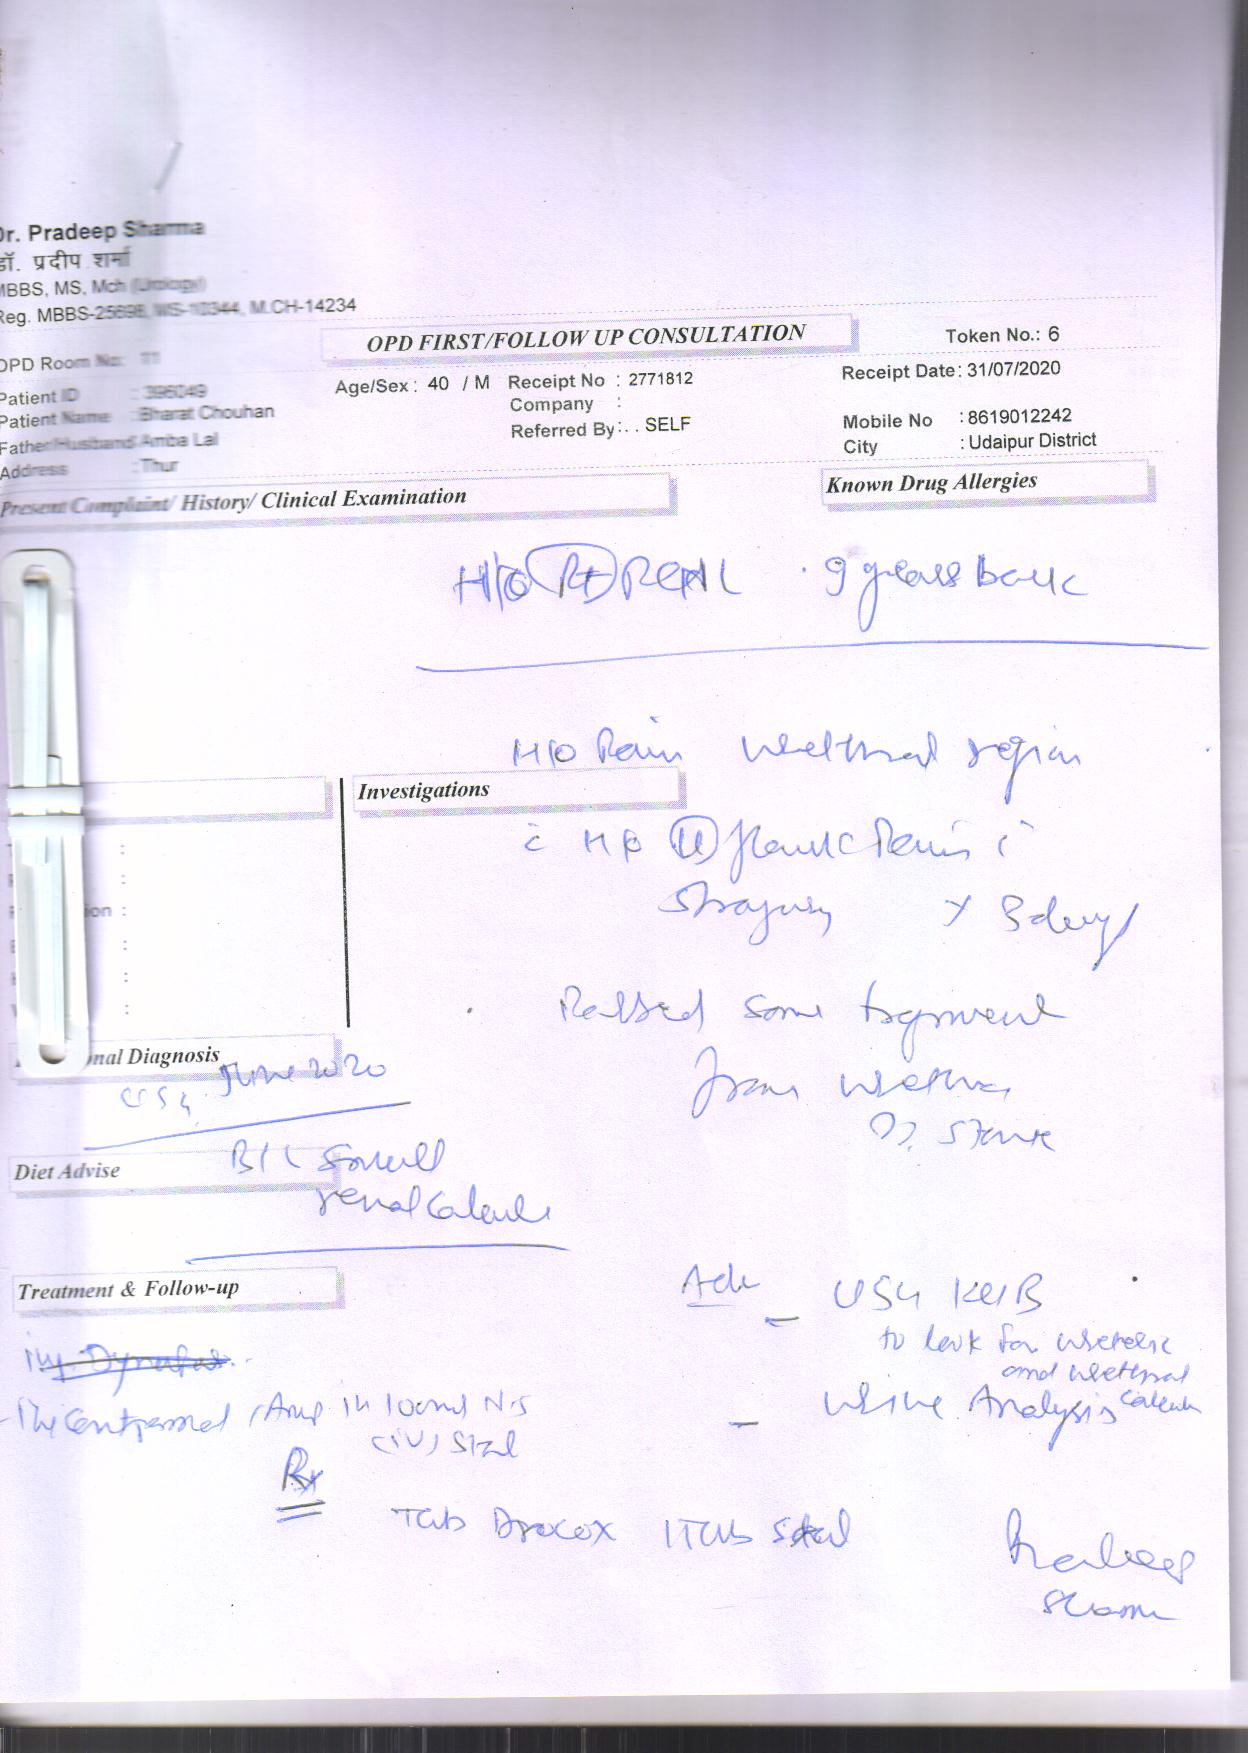 Dr. Pradeep Sharma
डॉ. प्रदीप शर्मा
MBBS, MS, Mch (Urology)
Reg. MBBS-25698, MS-10344, M.CH-14234
OPD FIRST/FOLLOW UP CONSULTATION
Token No.: 6
OPD Room No: 11
Patient ID : 396049
Age/Sex : 40 / M
Receipt No : 2771812
Receipt Date: 31/07/2020
Patient Name : Bharat Chouhan
Company :
Father/Husband/ Amba Lal
Referred By:. . SELF
Mobile No : 8619012242
Address : Thur
City : Udaipur District
Present Complaint/ History/ Clinical Examination
Known Drug Allergies
H/O Rt 9 years back
H/O Pain urethral region
Investigations
c H/o flank Pain c
strangury x 3 days
Passed some fragment
from urethra
?? stone
nal Diagnosis
USG June 2020
Diet Advise
B/L small
renal calculi
Treatment & Follow-up
Adv
- USG KUB
to look for ureteric
and urethral
calculi
- Urine Analysis
1 Amp in 100ml N.S
(IV) Stat
Rx
Tab 1 Tab Stat
Pradeep
Sharma